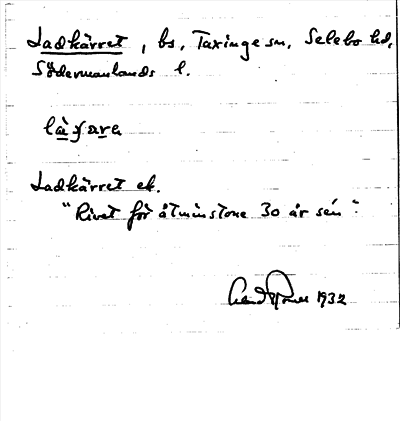 Ladkärret, bs, Taxinge sn, Selebo hd,
Södermanlands l.
Ladkärret ek.
"Rivet för åtminstone 30 år sen".
1932